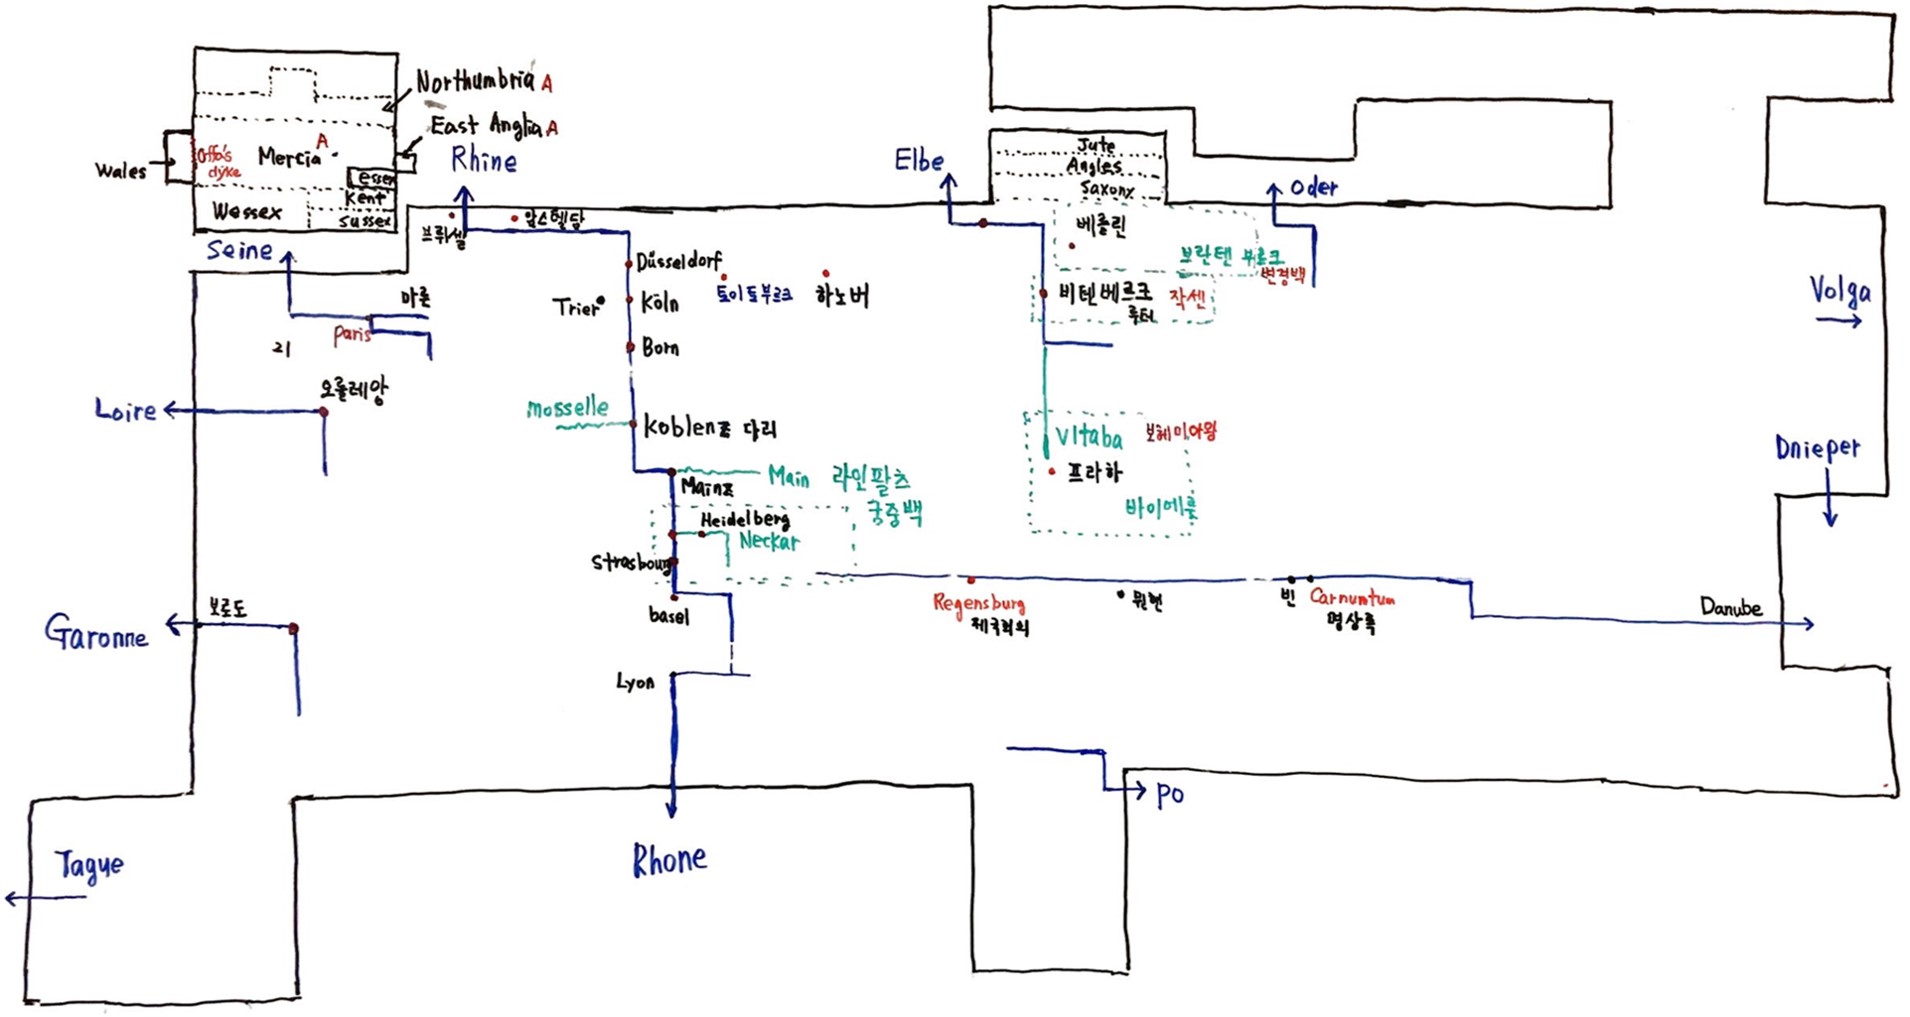 Northumbria A
East Anglia A
Wales
Offa's
dyke
Mercia
A
essex
Kent
Wessex
Sussex
Rhine
Elbe
Jute
Angles
Saxony
Oder
브뤼셀
암스텔담
Seine
마른
Paris
리
Düsseldorf
Trier
Köln
토이토부르크
하노버
Born
베를린
브란텐 부르크
변경백
비텐베르크
루터
작센
Volga
Loire
오를레앙
mosselle
Koblenz 다리
Vltaba
보헤미아왕
프라하
바이에른
Dnieper
Main 라인팔츠
궁중백
Mainz
Heidelberg
Neckar
Strasbourg
basel
Garonne
보르도
Regensburg
제국회의
뮌헨
빈
Carnuntum
명상록
Danube
Lyon
Po
Rhone
Tague